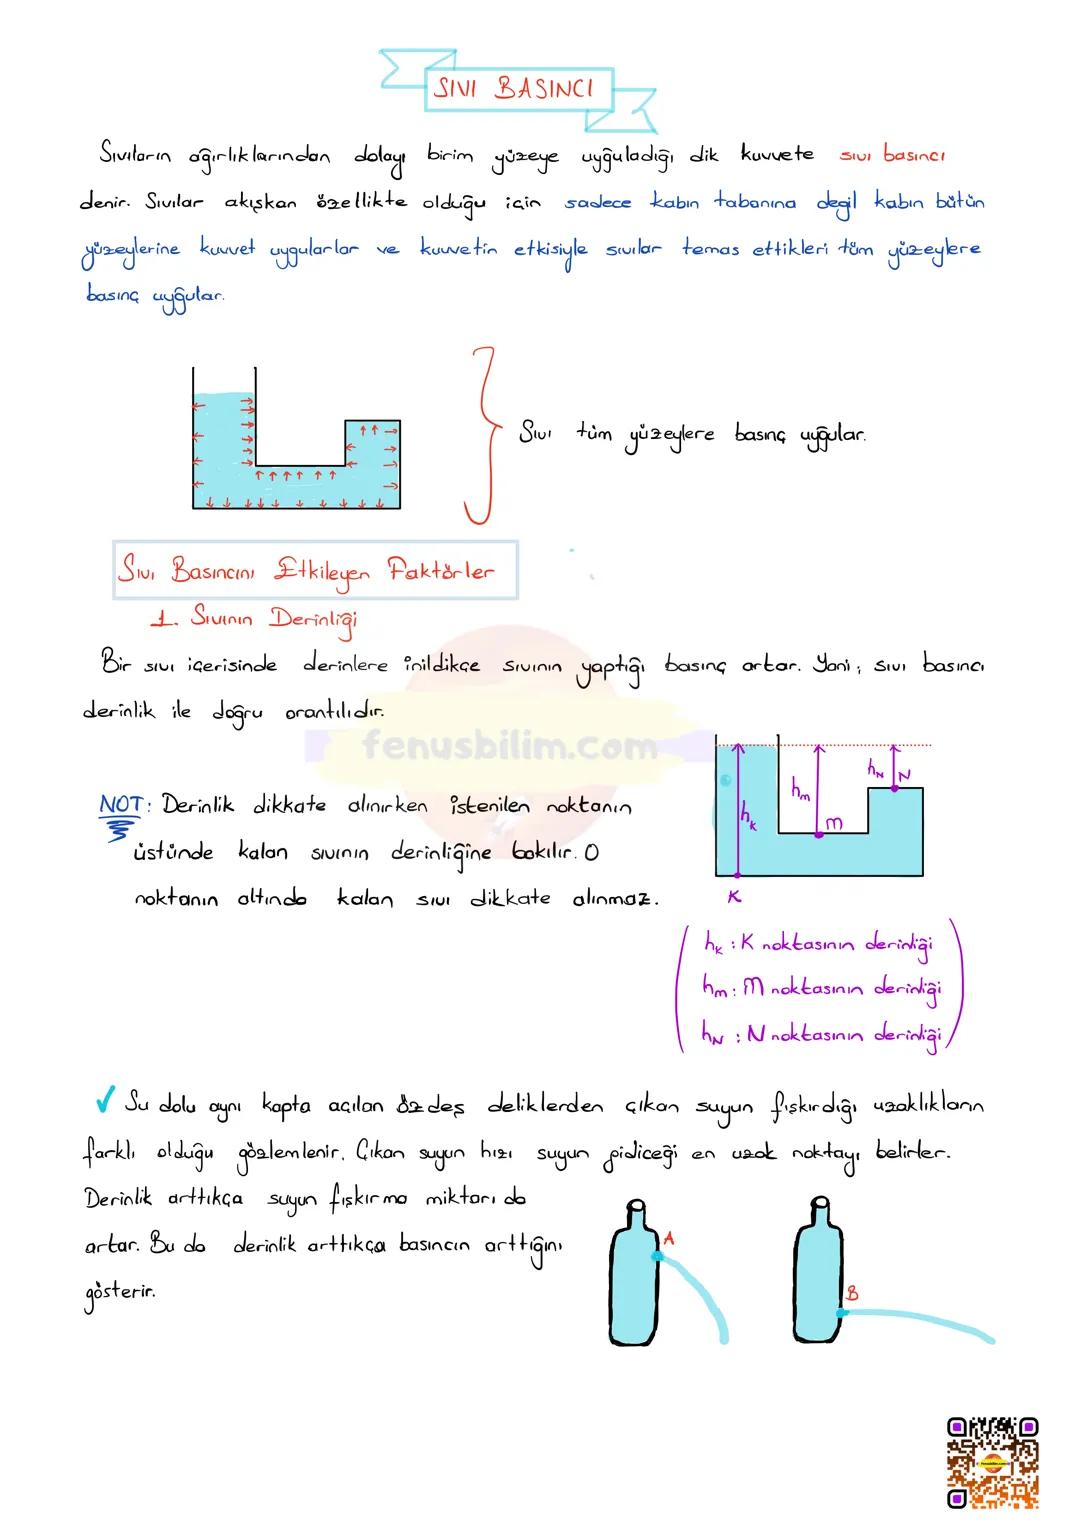 SIVI BASINCI
Sıvıların ağırlıklarından dolayı birim yüzeye uyğuladığı dik kuvvete sıvı basıncı
denir. Sıvılar akışkan özellikte olduğu için sadece kabın tabanına degil kabın bütün
yüzeylerine kuvvet uygularlar ve kuvvetin etkisiyle sıvılar temas ettikleri tüm yüzeylere
basınç uyğular.
Sıvı tüm yüzeylere basınç uyğular.
Sıvı Basıncını Etkileyen Faktörler
1. Sıvının Derinliği
Bir sıvı içerisinde derinlere inildikçe sıvının yaptığı basınç artar. Yani; sıvı basıncı
derinlik ile doğru orantılıdır.
fenusbilim.com
NOT: Derinlik dikkate alınırken istenilen noktanın
üstünde kalan sıvının derinliğine bakılır. O
noktanın altında kalan sıvı dikkate alınmaz.
hK
hm
hN
N
m
K
hK : K noktasının derinliği
hm : M noktasının derinliği
hN : N noktasının derinliği
✓ Su dolu aynı kapta açılan özdeş deliklerden çıkan suyun fışkırdığı uzaklıkların
farklı olduğu gözlemlenir. Çıkan suyun hızı suyun gidiceği en uzak noktayı belirler.
Derinlik arttıkça suyun fışkırma miktarı da
artar. Bu da derinlik arttıkça basıncın arttığını
gösterir.
A
B